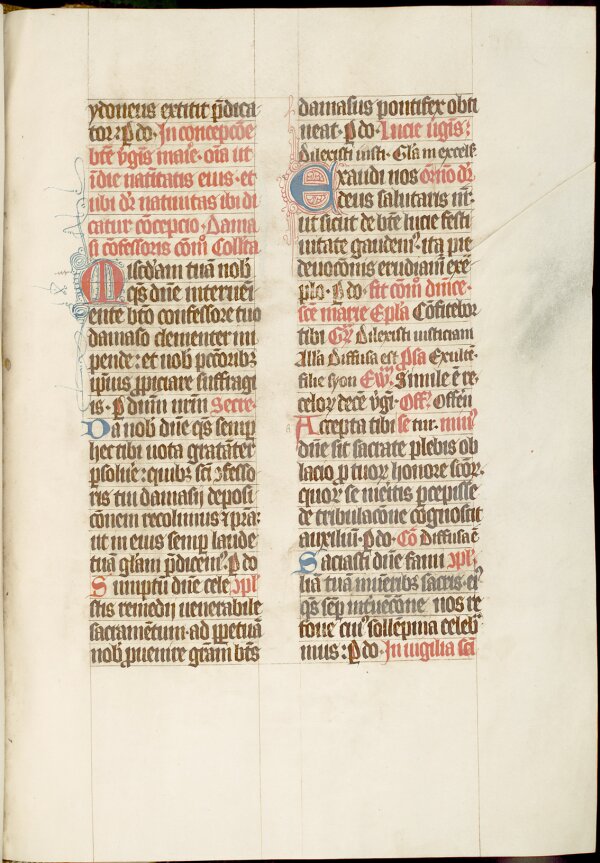 ydoneus extitit p̄dica
tor: P do. In concepc̄oe
bt̄e v̄gis marie. oīa ut
ī die natītatis eius. et
ubi dr̄ natiuitas ibi di
catur cōcepcio. Dama
si cōfessoris cōīs Coll̄ta
Misc̄dīam tuā nob
qs dn̄e interueī
ente bt̄o confessore tuo
damaso clementer im
pende: et nob pc̄toribꝫ
ipius ꝓpiciare suffragi
is. P dnūm nr̄m Secre.
Da nob dn̄e qs semp
hec tibi uota gratāter
ꝑsolue: quibꝫ sc̄i ꝯfesso
ris tui damasij deposi
cōnem recolimus ꝛ p̄ta:
ut in eius semp laude
tuā gl̄am p̄dicem⁹. P do
Sumptū dn̄e cele ꝯpl̄
stis remedij uenerabile
sacramētum. ad ꝑpetuā
nob ꝓuenire gr̄am bt̄s
damasus pontifex obti
neat. P do. Lucie v̄gis:
Dilexisti iusti. Gl̄a in excels̄
Exaudi nos or̄nio dr̄
deus salutaris nr̄:
ut sicut de bt̄e lucie festi
uitate gaudem⁹. ita pie
deuocōnis erudiam̄ exē
plo. P do. fit cōm̄ dn̄ice.
sc̄e marie Ep̄la Cōfitebor
tibi Gr̄ Dilexisti iusticiam
Alla Diffusa est P̄sa Exulte.
filie syon Ew̄. Simile ē re.
celoꝝ decē v̄gī. Off. Offēn̄
Accepta tibi se tur. mun⁹
dn̄e sit sacrate plebis ob
lacio ꝑ tuoꝝ honore sc̄oꝝ.
quoꝝ se meītis ꝑcepisse
de tribulacōne cognoscit
auxiliū. P do. Cō Diffusa ē
Saciasti dn̄e fami ꝯpl̄.
liā tuā mūeribꝫ sacris. ei⁹
qs sēp int̄uēcōne nos re
foue cui⁹ sollepnia celeb
mus: P do. In uigilia sc̄i